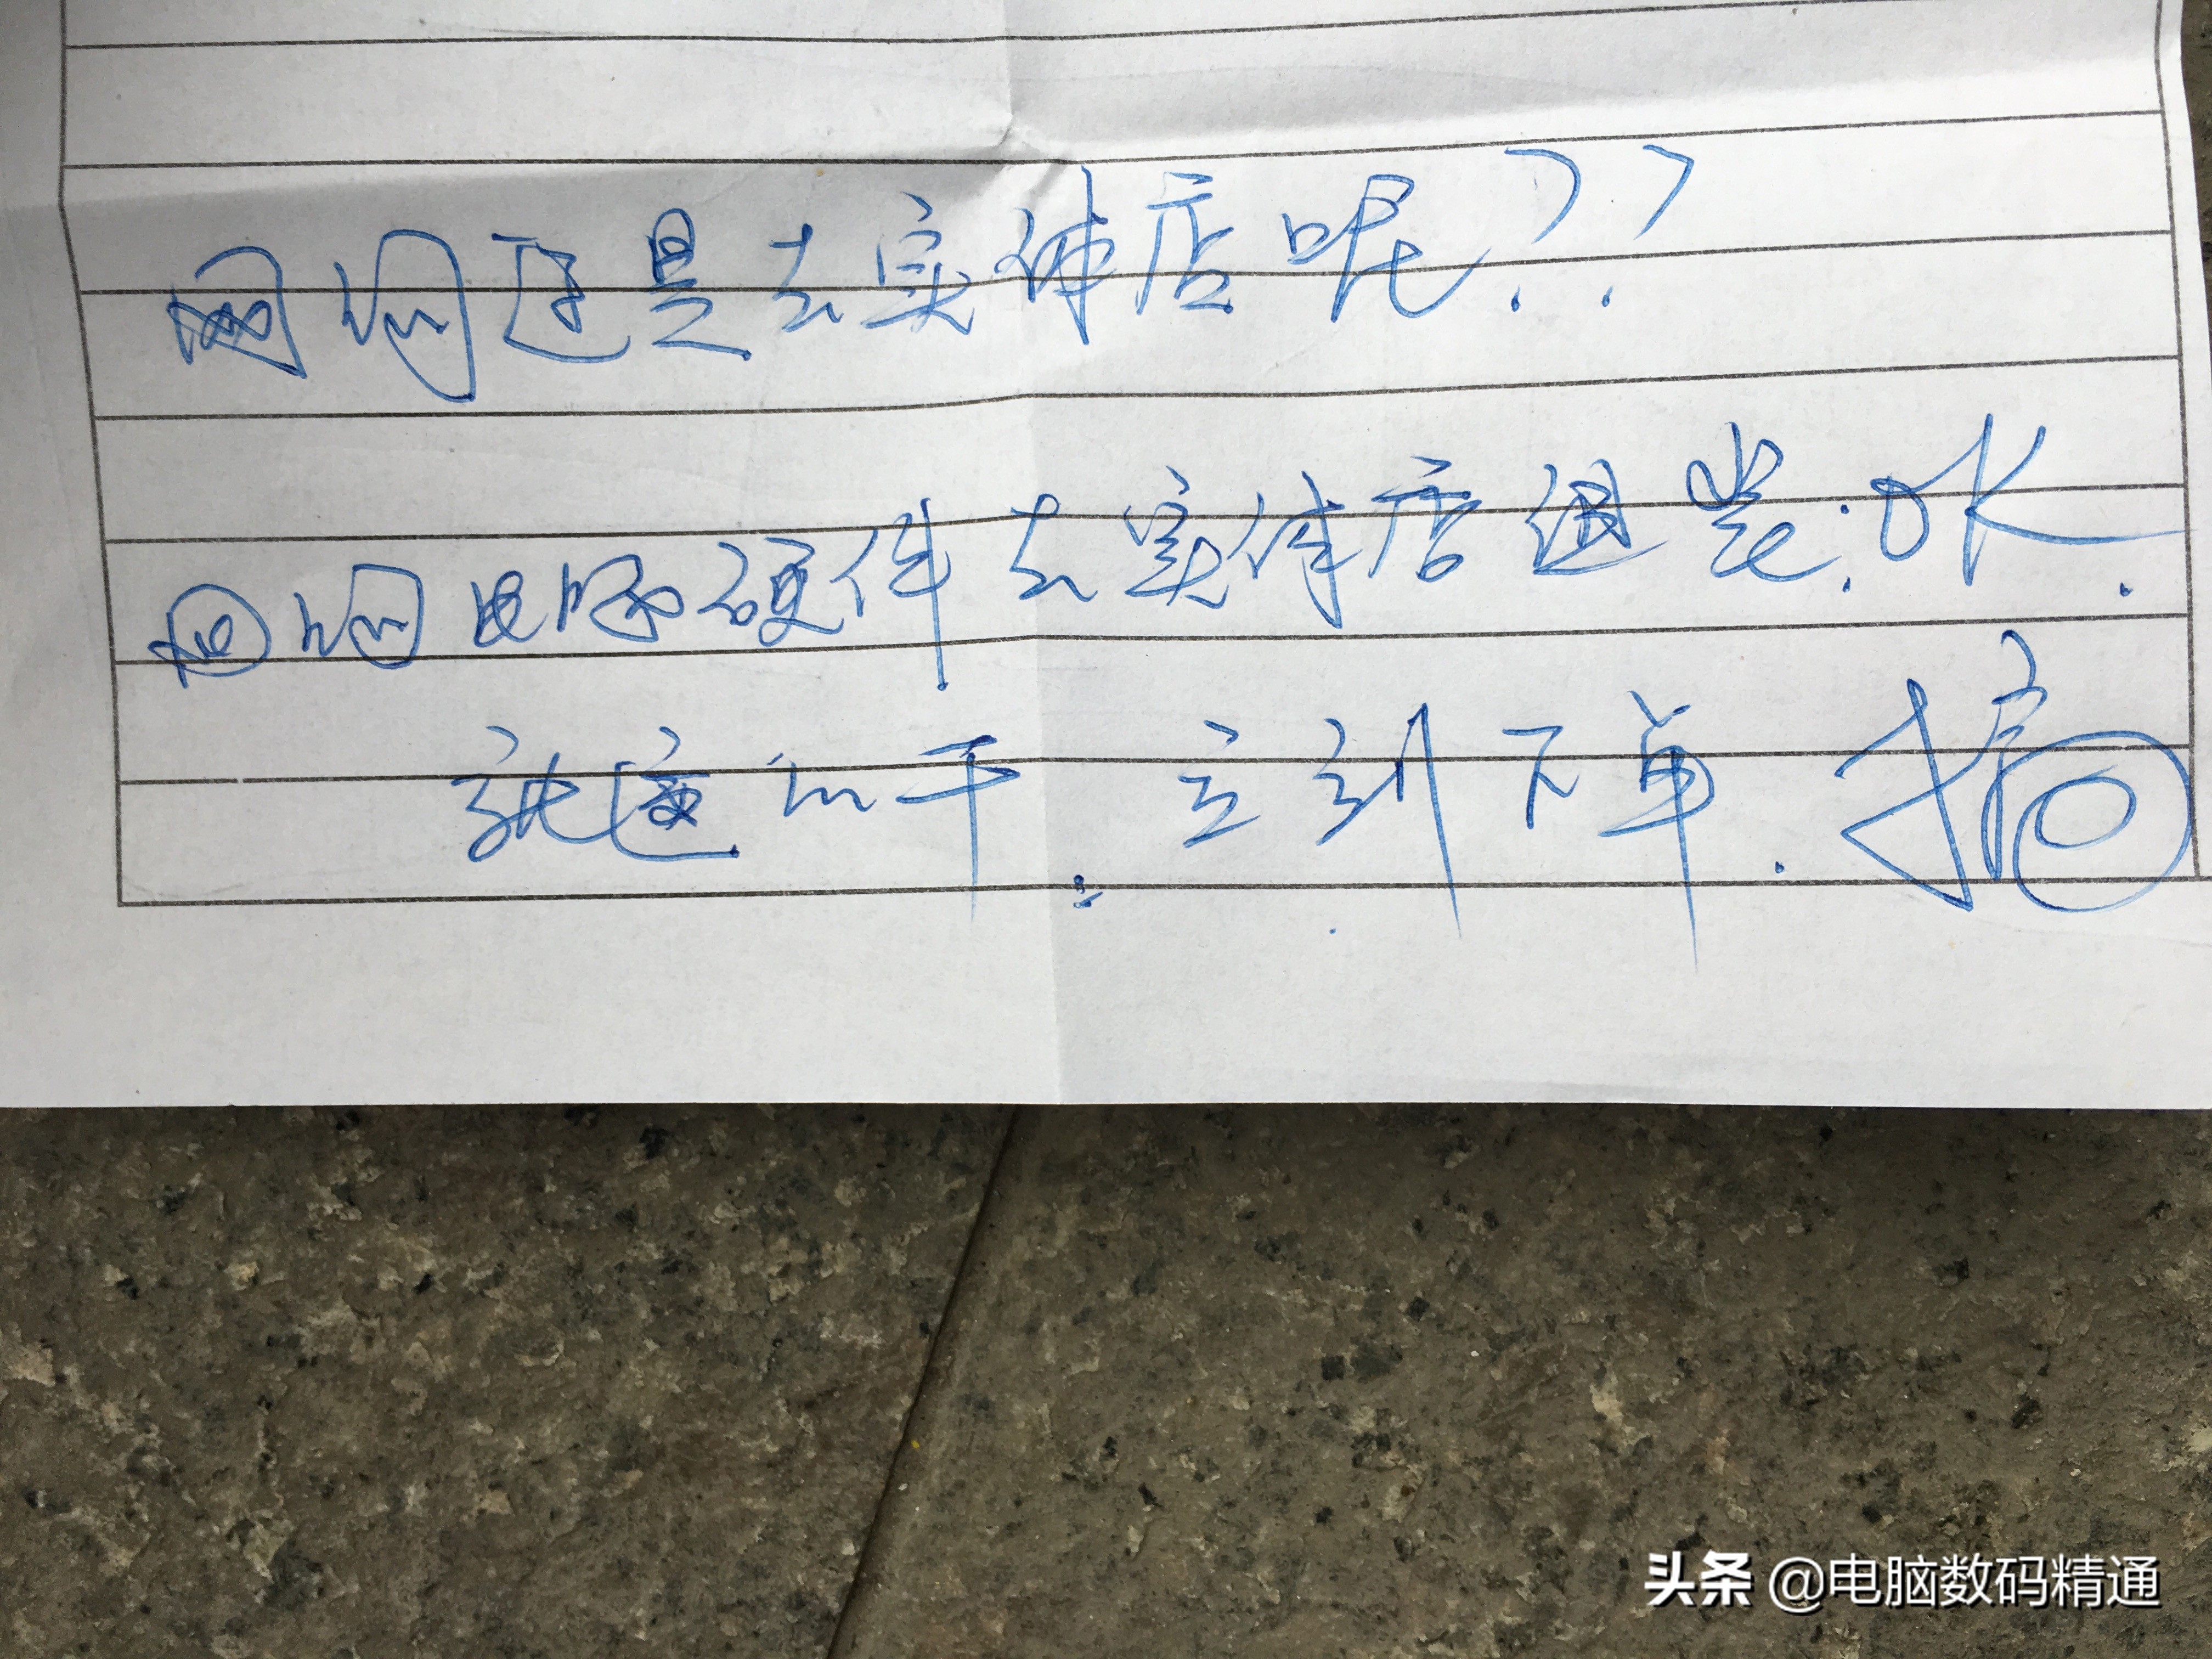 网购还是去实体店呢??
网购电脑硬件去实体店组装.OK.
就这么干.立刻下单.搞
头条 @电脑数码精通